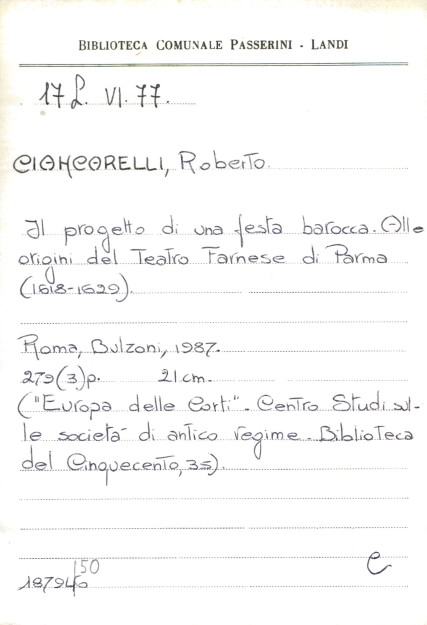 BIBLIOTECA COMUNALE PASSERINI - LANDI
17 L. VI. 77.
CIANCARELLI, Roberto.
Il progetto di una festa barocca. Alle
origini del Teatro Farnese di Parma
(1618-1629).
Roma, Bulzoni, 1987.
279(3)p. 21 cm.
("Europa delle Corti". Centro Studi sul-
le società di antico regime. Biblioteca
del Cinquecento, 35).
150
e